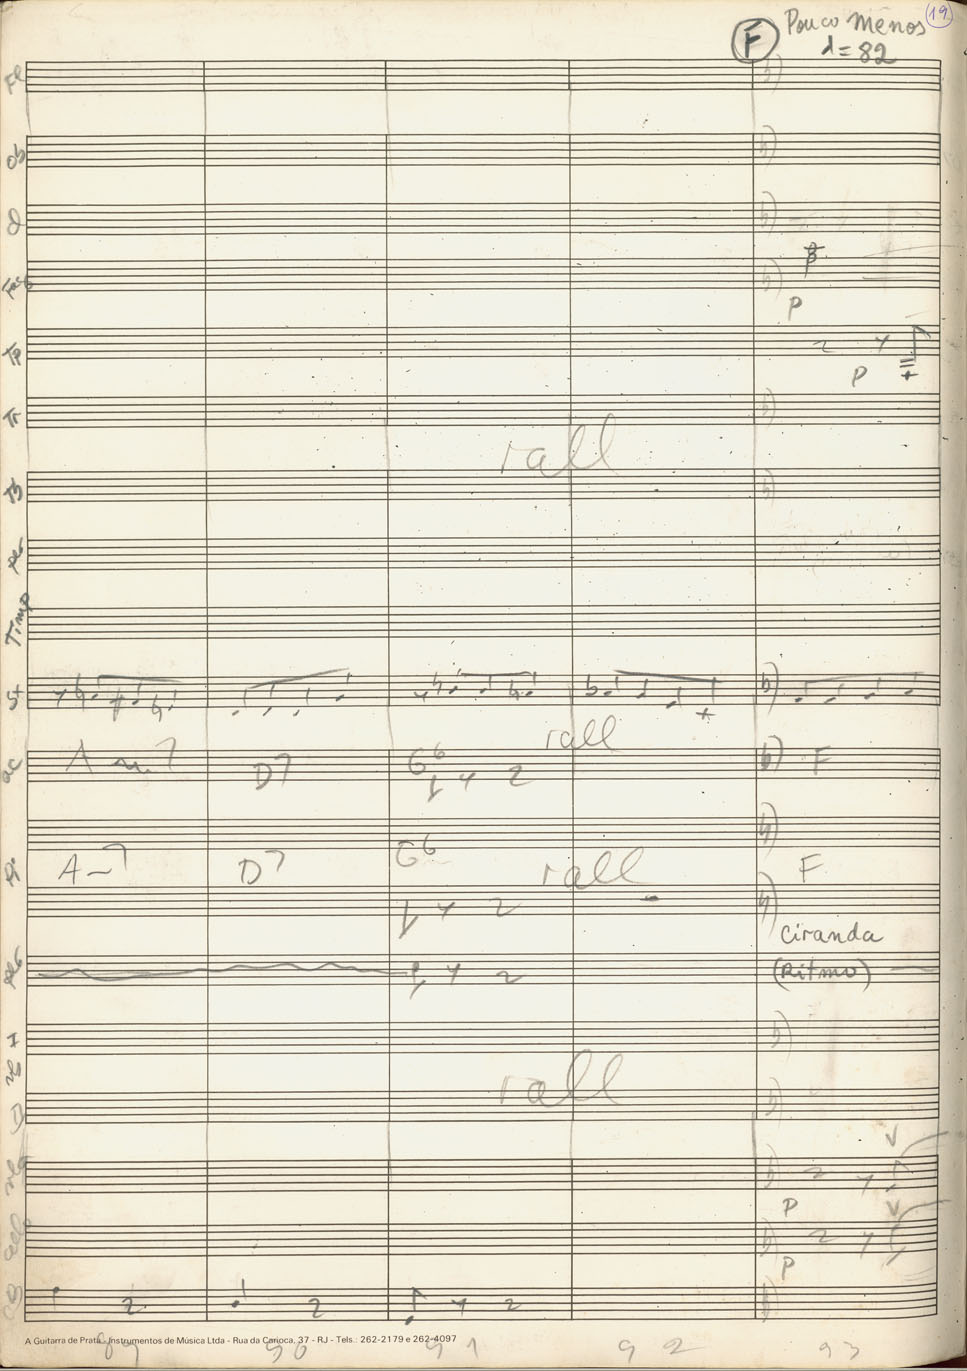 19
F Pouco Menos
♩= 82
Fl
Ob
Cl
Fag
Tp
p
p
Tr
rall
Tb
Per
Timp
St
rall
ac
Am7 D7 G6 F
Pi
A-7 D7 G6 rall F
Ciranda
(Ritmo)
rall
vla
p
cello
p
CB
A Guitarra de Prata - Instrumentos de Música Ltda - Rua da Carioca, 37 - RJ - Tels.: 262-2179 e 262-4097
89 90 91 92 93